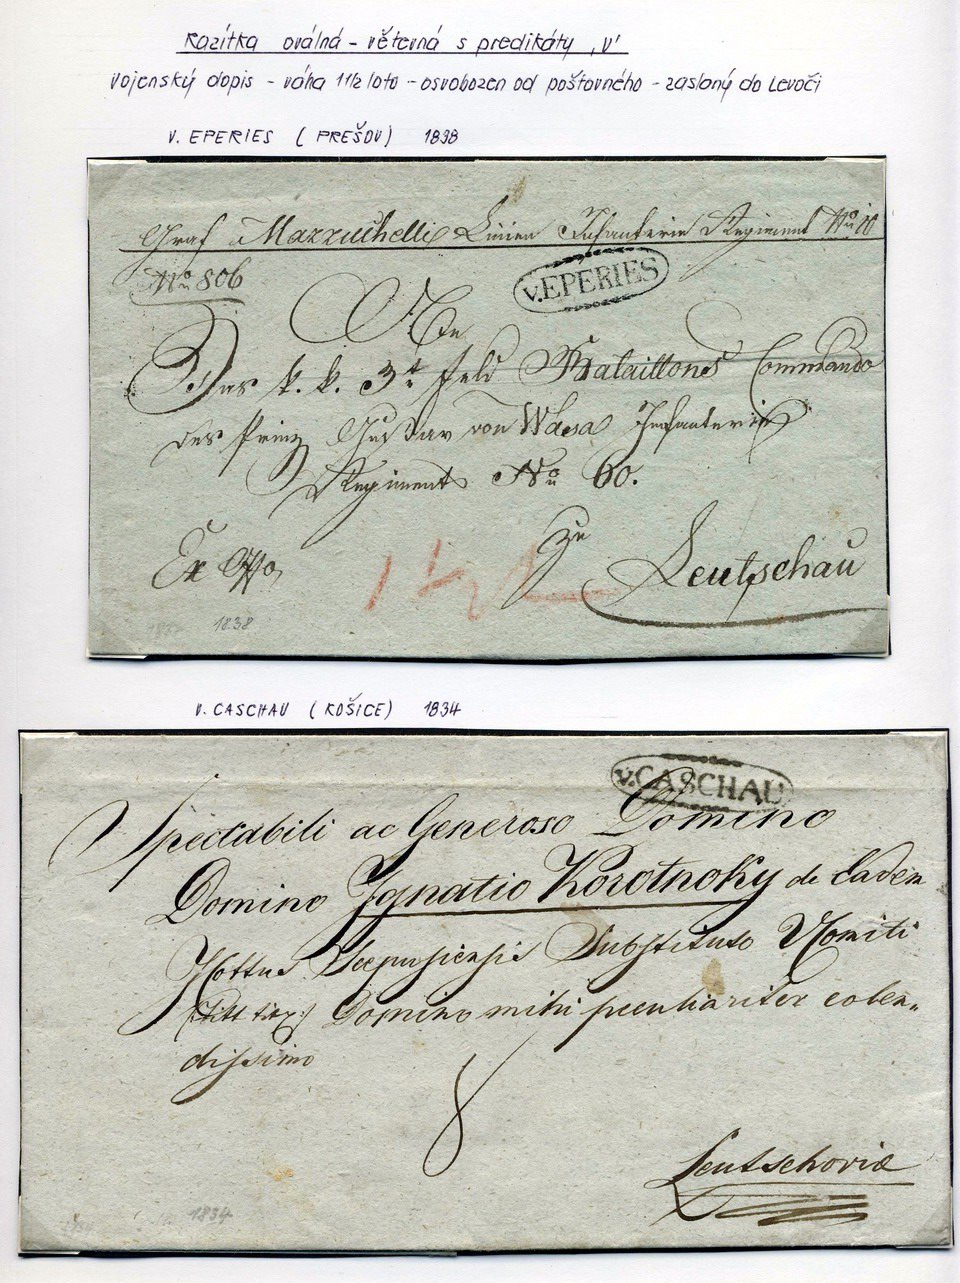 Razítka oválná - větevná s predikáty 'V'
Vojenský dopis - váha 1 1/2 loto - osvobozen od poštovného - zaslaný do Levoči
V. EPERIES (PREŠOV) 1838
Graf Mazzuchelli Linien Infanterie Regiment No 10
No 806
v. EPERIES
An
Das k. k. 3t Feld Bataillons Commando
des Prinz Gustav von Wasa Infanterie
Regiments No 60.
Ex Offo
zu
Leutschau
1 1/2 L
1838
V. CASCHAU (KOŠICE) 1834
v. CASCHAU
Spectabili ac Generoso Domino
Domino Ignatio Korotnoky de eadem
Cottus Scepusiensis Substituto
Domino mihi peculiariter colen-
dissimo
8
Leutschoviæ
1834